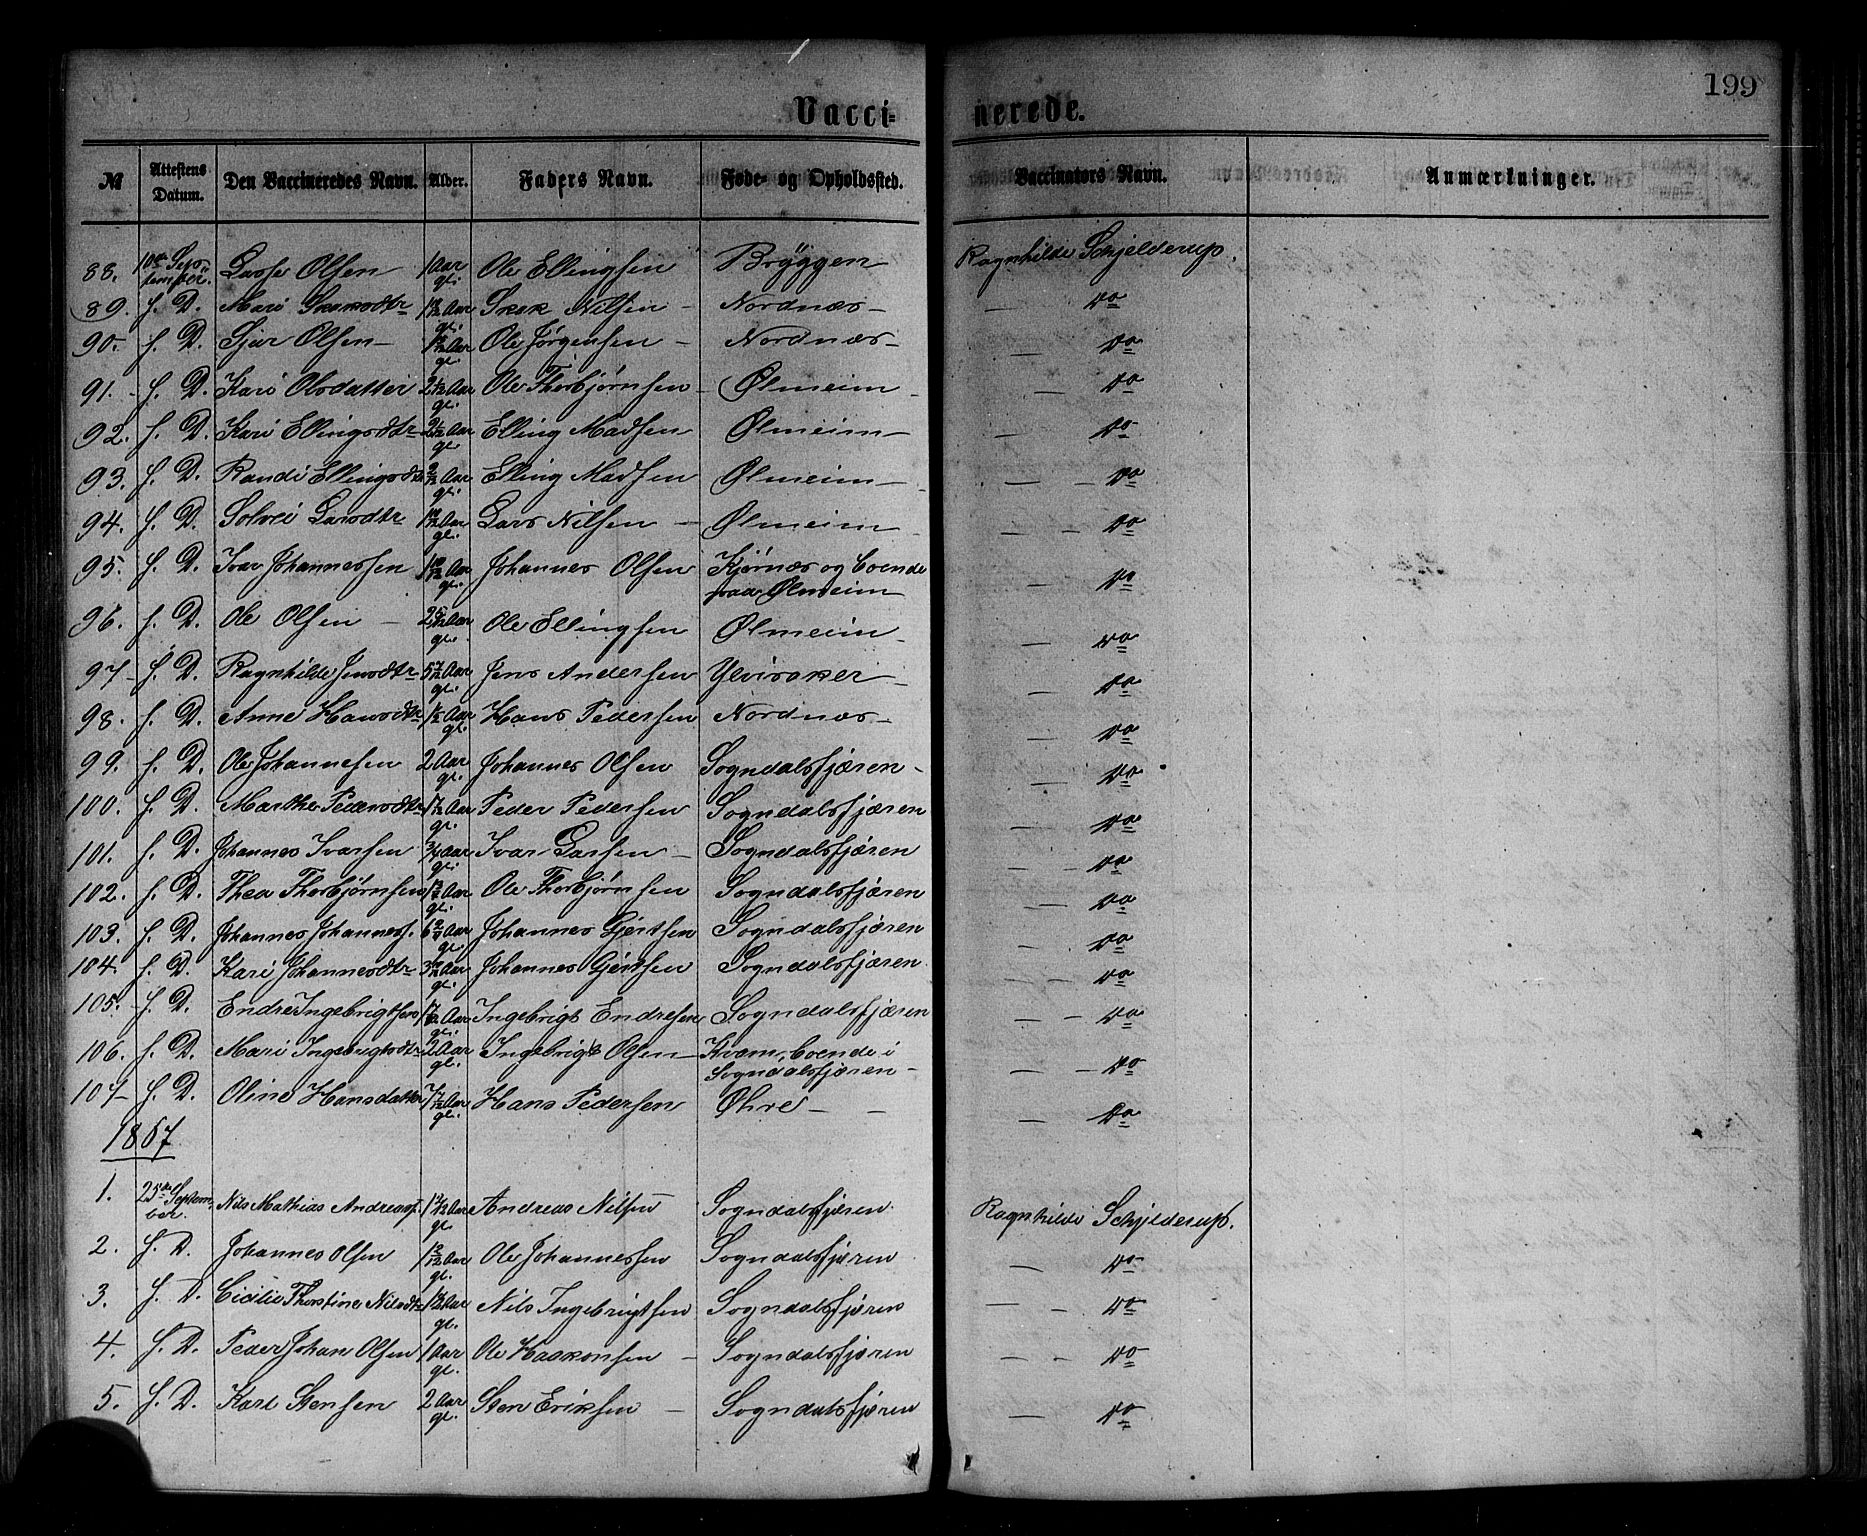 199
Vacci- nerede.
№ Attestens Datum. Den Vaccineredes Navn. Alder. Faders Navn. Føde- og Opholdssted. Vaccinators Navn. Anmærkninger.
88. 10de September. Lasse Olsen 1 Aar gl. Ole Ellingsen Brÿggen Ragnhilde Schjelderup.
89. s. D. Mari Aar gl. Nilsen – Nordnæs – — do
90. s. D. Sjur Olsen – Aar gl. Ole Jørgensen – Nordnæs – — do
91. s. D. Kari Olsdatter Aar gl. Ole Thorbjørnsen – Ølmeim — do
92. s. D. Kari Ellingsdtr Aar gl. Elling Madsen Ølmeim — do
93. s. D. Randi Ellingsdtr Aar gl. Elling Madsen Ølmeim — — – do
94. s. D. Solvei Larsdtr Aar gl. Lars Nilsen — Ølmeim — — – do
95. s. D. Ivar Johannessen Aar gl. Johannes Olsen Kjørnæs og boende
paa Ølmeim — – do
96. s. D. Ole Olsen – Aar gl. Ole Ellingsen Ølmeim – — do
97 – s. D. Ragnhilde Jensdtr 5 7/12 Aar gl. Jens Andersen Ylvisaker – — do
98. s. D. Anne Hansdtr Aar gl. Hans Pedersen Nordnæs – — do
99. s. D. Ole Johannesen 2 Aar gl. Johannes Olsen Sogndalsfjæren – — do
100. s. D. Marthe Pedersdtr Aar gl. Peder Pedersen Sogndalsfjæren — – do
101. s. D. Johannes Ivarsen 3/4 Aar gl. Ivar Larsen – Sogndalsfjæren — – do
102. s. D. Thea Thorbjørnsen Aar gl. Ole Thorbjørnsen Sogndalsfjæren — – do
103. s. D. Johannes Johanness. Aar gl. Johannes Gjertsen Sogndalsfjæren — – do
104. s. D. Kari Johannesdtr Aar gl. Johannes Gjertsen Sogndalsfjæren — – do
105. – s. D. Endre Ingebrigtsen Aar gl. Ingebrigt Endresen Sogndalsfjæren — – do
106. s. D. Mari Ingebrigtsdtr 2 Aar gl. Ingebrigt Olsen – Kvam, boende i
Sogndalsfjæren – — – do
107 – s. D. Oline Hansdatter 7/12 Aar gl. Hans Pedersen Øhre – – — do
1867
1. 25de September. Nils Mathias Andreass. Aar gl. Andreas Nilsen Sogndalsfjæren Ragnhilde Schjelderup.
2. s. D. Johannes Olsen Aar gl. Ole Johannessen Sogndalsfjæren — – do
3. s. D. Cicilie Thorstine Nilsdtr Aar gl. Nils Ingebrigtsen Sogndalsfjæren — – do
4. s. D. Peder Johan Olsen 1 Aar gl. Ole Haakonsen – Sogndalsfjæren — – do
5. s. D. Karl Stensen 2 Aar gl. Sten Eriksen – Sogndalsfjæren — – do